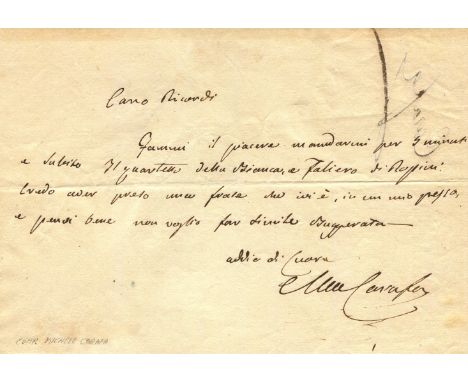 Caro Ricordi
Fammi il piacere mandarmi per 5 minuti
e subito Il quartetto della Bianca, e Faliero di Rossini.
Credo aver preso una frase che ivi è, in un mio pezzo,
e perciò bene non voglio far simile Buggerata
addio di Cuore
Carafa
COMP. MICHELE CARAFA